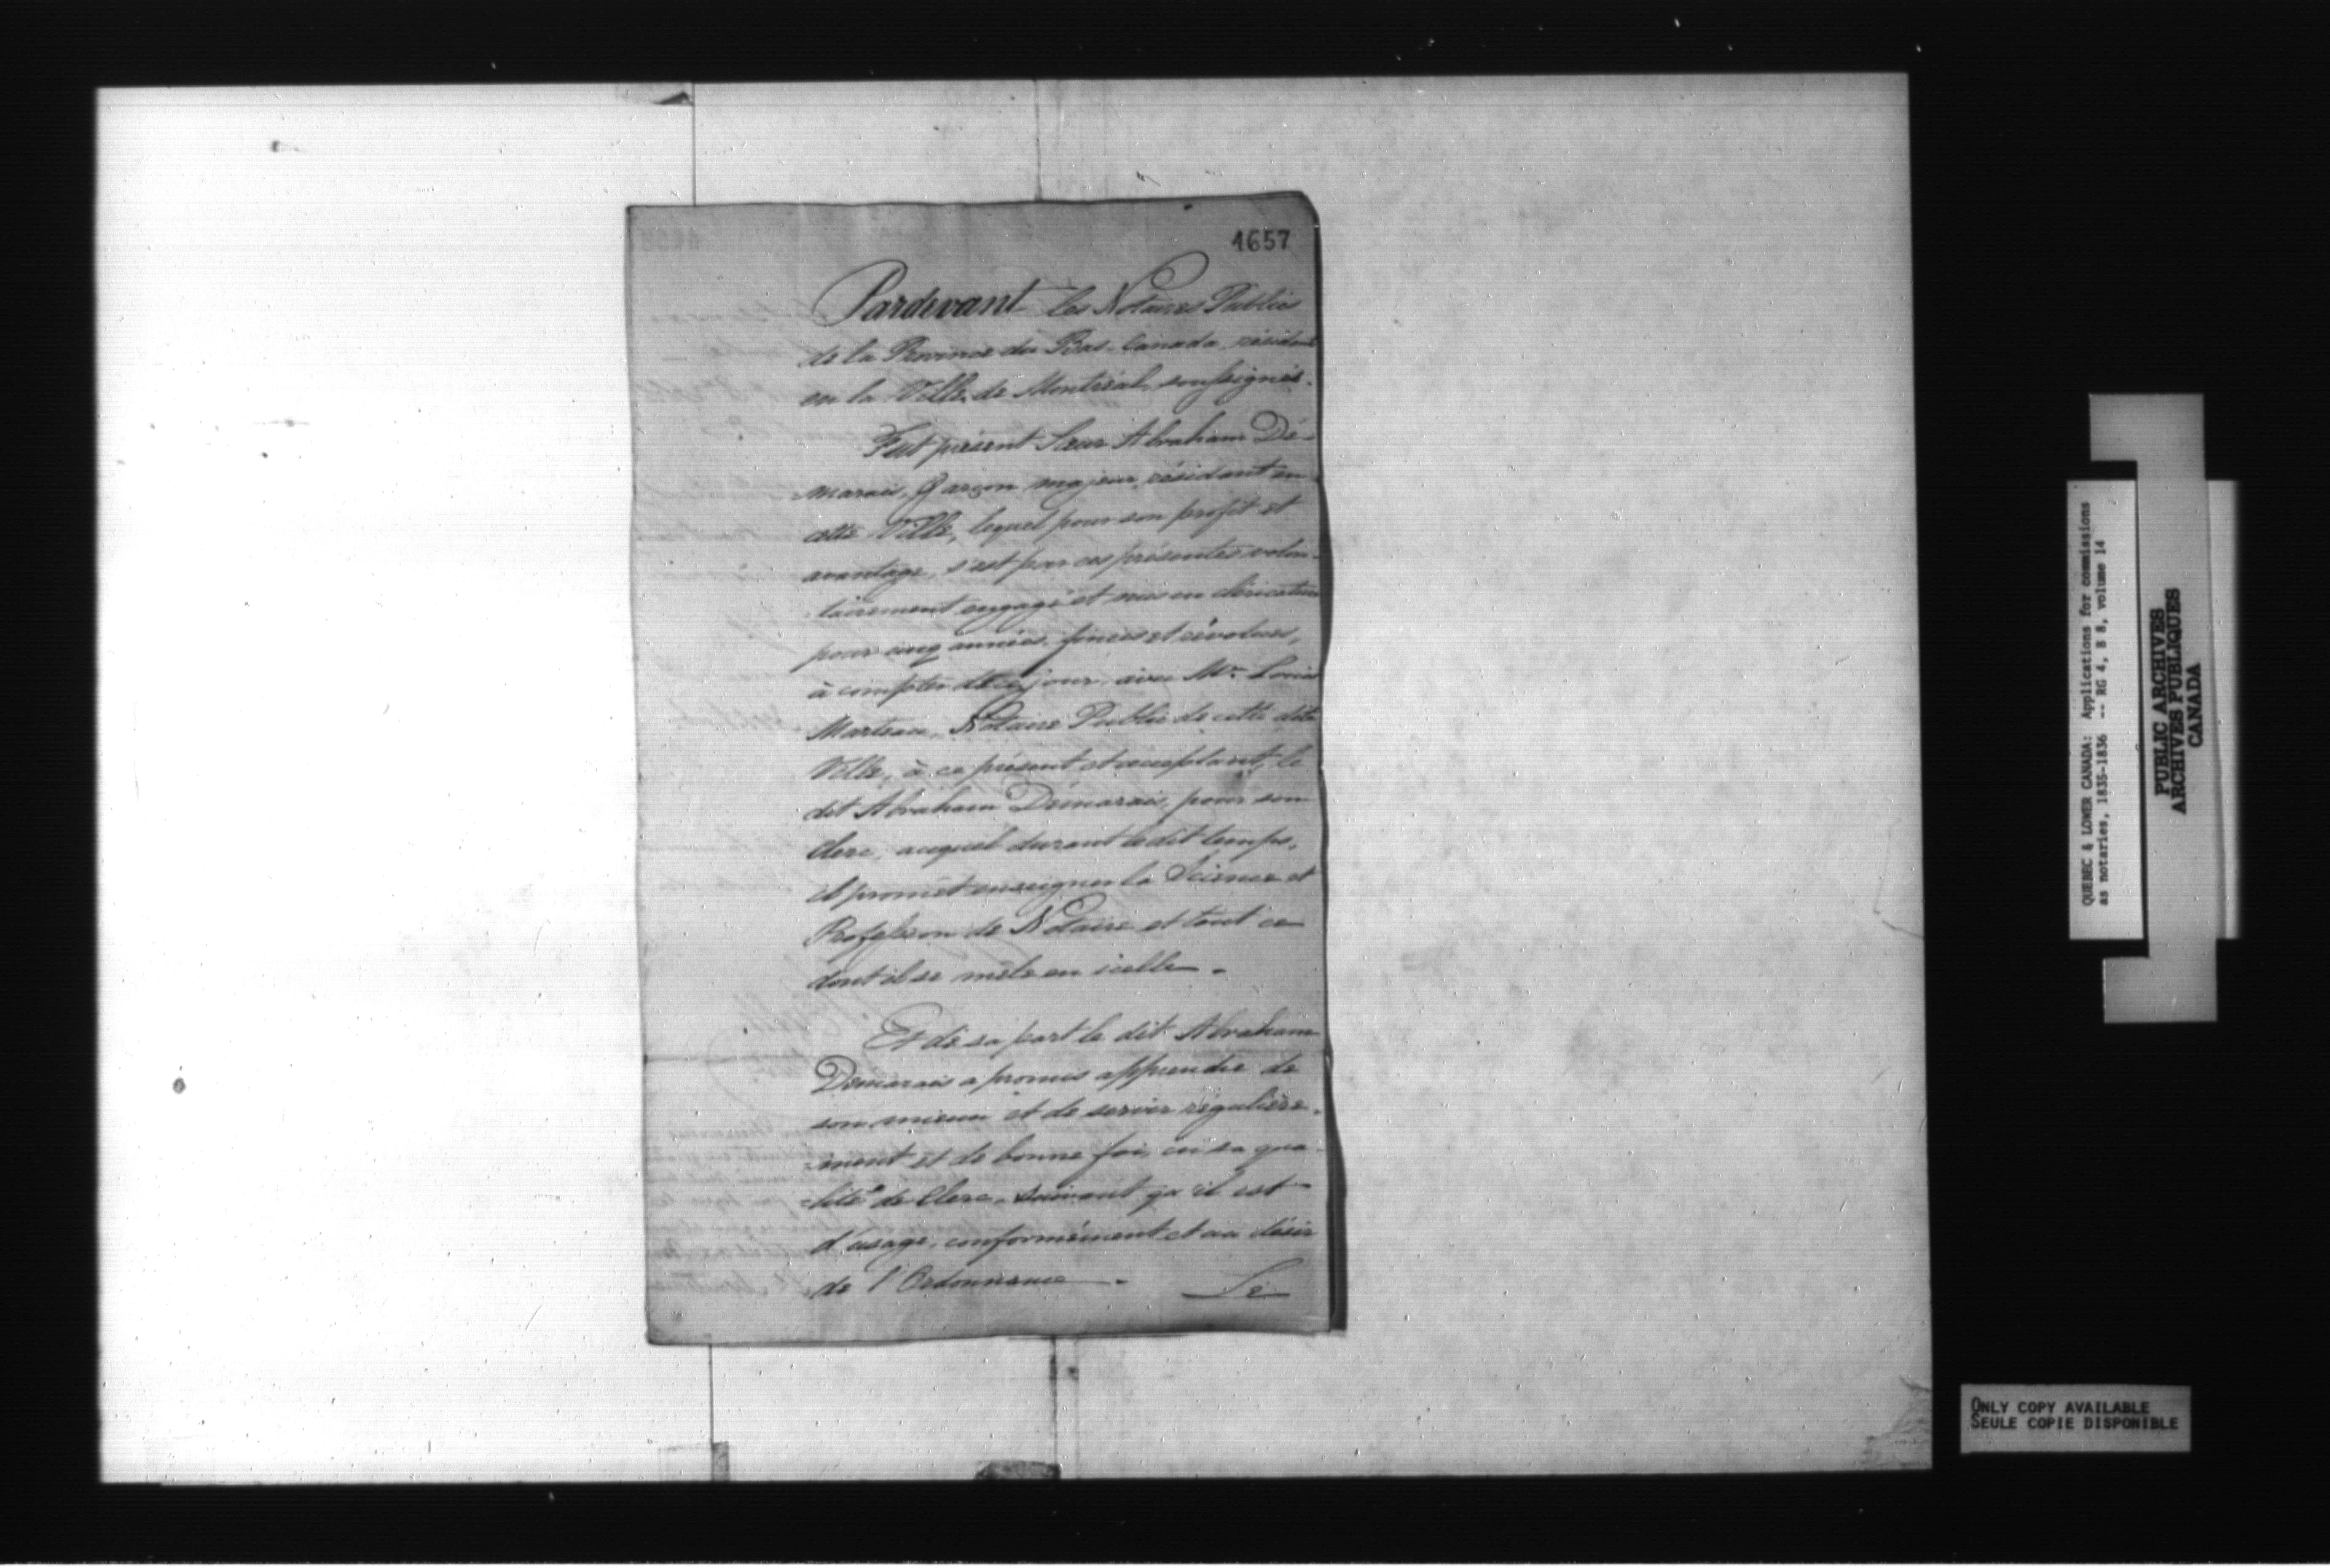 4657
Pardevant les Notaires Publics
de la Province du Bas-Canada, résidant
en la Ville de Montréal, soussignés.
Fut présent Sieur Abraham Dé-
marais, Garçon majeur, résidant en
cette Ville, lequel pour son profit et
avantage, s'est par ces présentes volon-
tairement engagé et mis en cléricature
pour cinq années finies et révolues,
à compter de ce jour, avec Mr. Louis
Marteau, Notaire Public de cette dite
Ville, à ce présent et acceptant, le
dit Abraham Démarais, pour son
Clerc, auquel durant le dit temps,
il promet enseigner la Science et
Profession de Notaire et tout ce
dont il se mêle en icelle.
Et de sa part le dit Abraham
Démarais a promis apprendre de
son mieux et de servir régulière-
ment et de bonne foi, en sa qua-
lité de Clerc, suivant qu'il est
d'usage, conformément et au désir
de l'Ordonnance. Le
QUEBEC & LOWER CANADA: Applications for commissions
as notaries, 1835-1836 -- RG 4, B 8, volume 14
PUBLIC ARCHIVES
ARCHIVES PUBLIQUES
CANADA
ONLY COPY AVAILABLE
SEULE COPIE DISPONIBLE